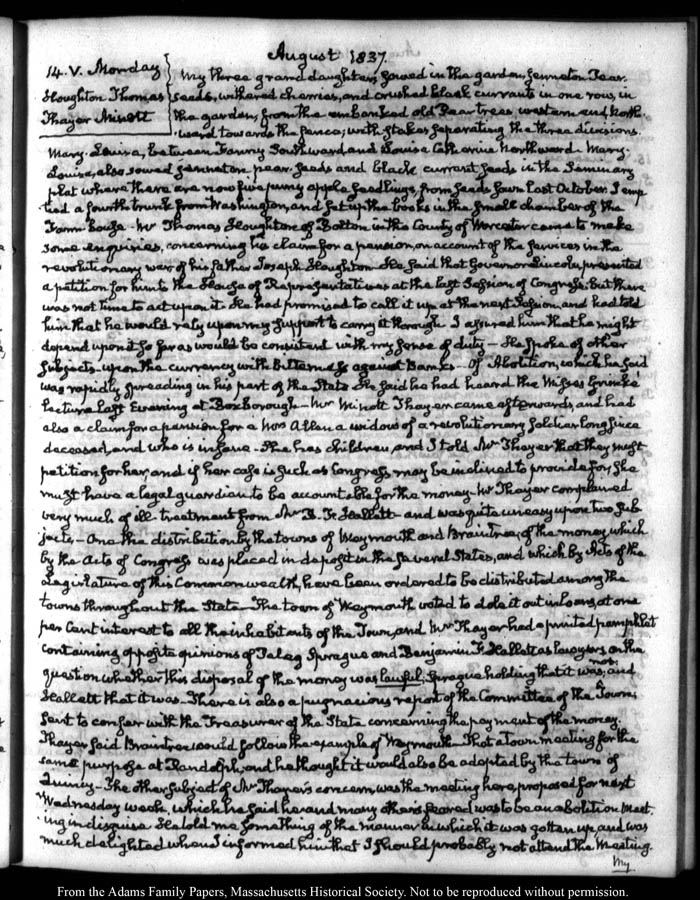 August 1837.
14. V. Monday
Houghton Thomas
Thayer Minott
My three grand daughters, sowed in the garden, Jenneton Pear
seeds, withered cherries, and crushed black currants in one row, in
the garden, from the embanked old Pear tree western and north-
ward towards the fence; with stakes separating the three divisions.
Mary-Louisa, between Fanny Southward and Louisa Catherine Northward. Mary-
Louisa, also sowed Jenneton pear seeds and black currant seeds in the Seminary
plat where there are now five puny apple seedlings, from seeds sown last October. I emp-
tied a fourth trunk from Washington, and set up the books in the small chamber of the
Farm house. Mr Thomas Houghton of Bolton in the County of Worcester came to make
some enquiries, concerning his claim for a pension, on account of the services in the
revolutionary war of his father Joseph Houghton. He said that Governor Lincoln presented
a petition for him to the House of Representatives at the last Session of Congress. But there
was not time to act upon it. He had promised to call it up at the next Session, and had told
him that he would rely upon my support to carry it through. I assured him that he might
depend upon it so far as would be consistent with my sense of duty — He spoke of other
subjects — upon the currency with bitterness against Banks — Of Abolition, which he said
was rapidly spreading in his part of the State. He said he had heard the Misses Grimke
lecture last Evening at Boxborough — Mr Minott Thayer came afterwards, and had
also a claim for a pension for a Mrs Allen a widow of a revolutionary soldier long since
deceased, and who is insane. She has children and I told Mr Thayer that they must
petition for her, and if her case is such as Congress may be inclined to provide for, she
must have a legal guardian to be accountable for the money. Mr Thayer complained
very much of ill treatment from Mr B. F. Hallett — and was quite uneasy upon two sub-
jects — One the distribution by the towns of Weymouth and Braintree, of the money which
by the Acts of Congress was placed in deposit in the several States, and which by Acts of the
Legislature of this Commonwealth, have been ordered to be distributed among the
towns throughout the State. The town of Weymouth voted to dole it out in loans, at one
per Cent interest to all the inhabitants of the Town, and Mr Thayer had a printed pamphlet
containing opposite opinions of Peleg Sprague and Benjamin F. Hallett as lawyers on the
question whether this disposal of the money was lawful, Sprague holding that it was not, and
Hallett that it was. There is also a pugnacious report of the Committee of the Town,
sent to confer with the Treasurer of the State concerning the payment of the money.
Thayer said Braintree would follow the example of Weymouth — That a Town meeting for the
same purpose at Randolph, and he thought it would also be adopted by the town of
Quincy — The other subject of Mr Thayer's concern, was the meeting here, proposed for next
Wednesday week, which he said he and many others feared was to be an abolition meet-
ing in disguise. He told me something of the manner in which it was gotten up, and was
much delighted when I informed him that I should probably not attend the Meeting.
My
From the Adams Family Papers, Massachusetts Historical Society. Not to be reproduced without permission.